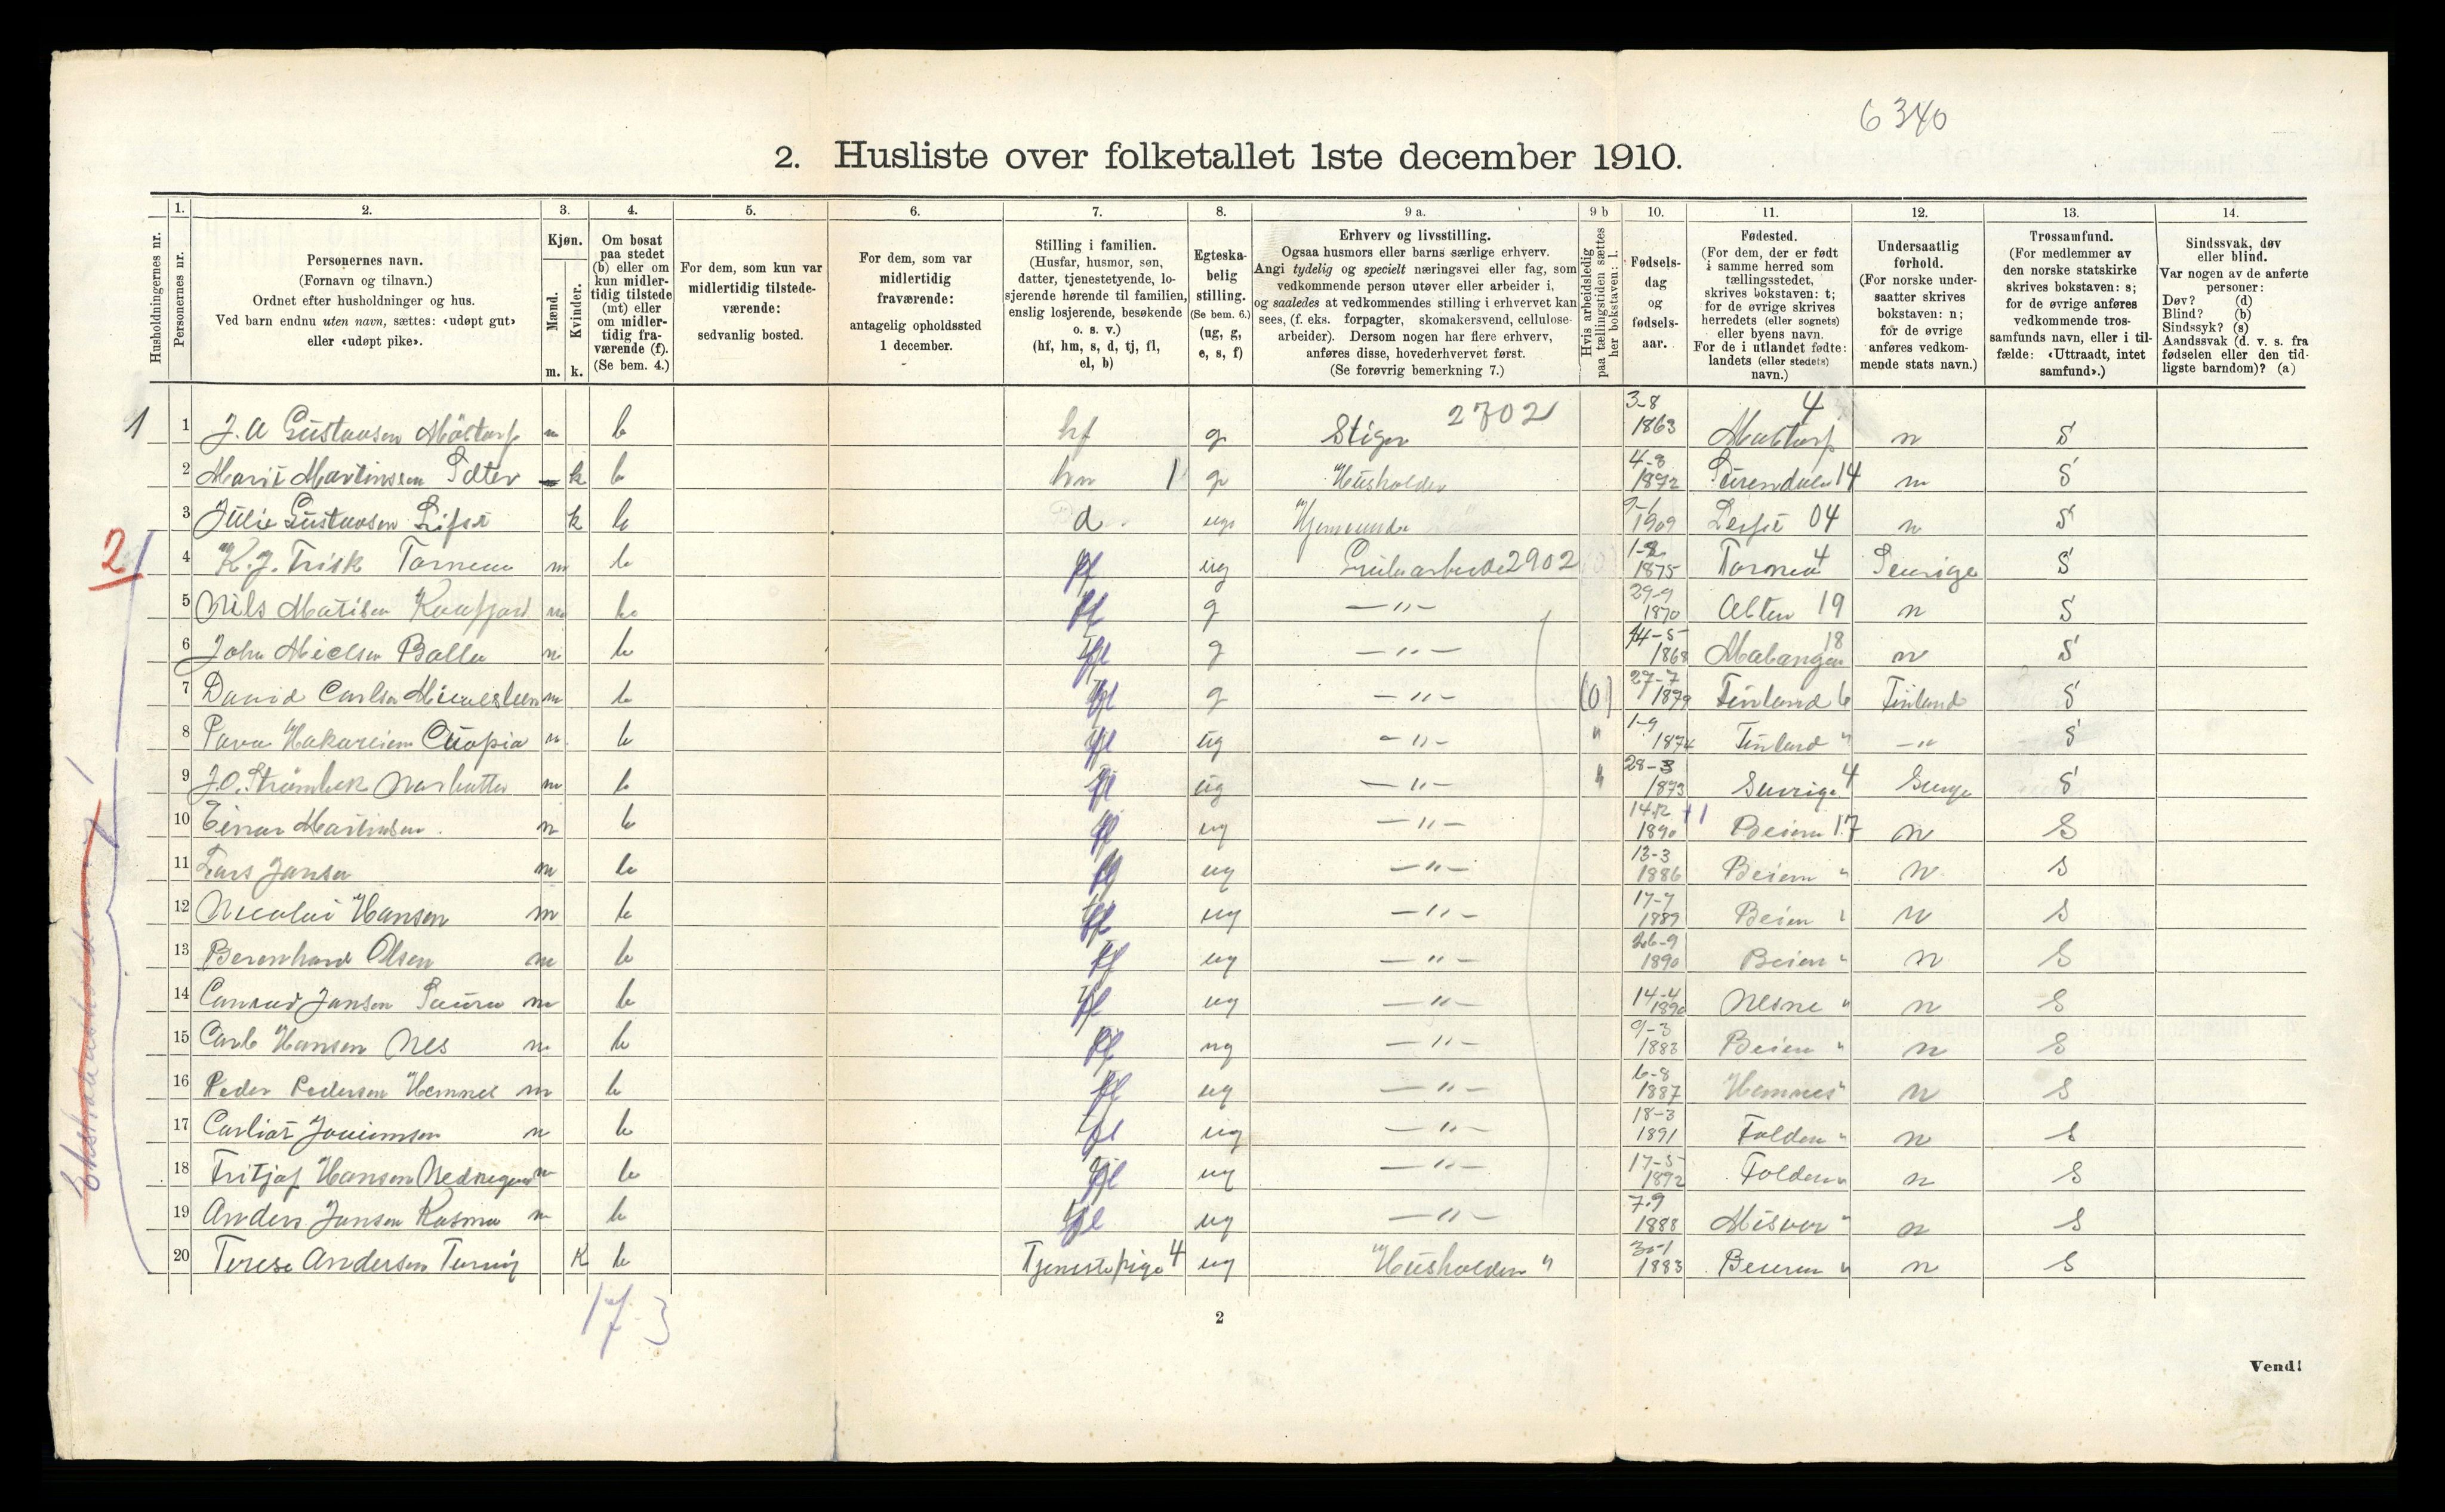 6340
2. Husliste over folketallet 1ste december 1910.
Husholdningernes nr.
1. Personernes nr.
2. Personernes navn. (Fornavn og tilnavn.) Ordnet efter husholdninger og hus. Ved barn endnu uten navn, sættes: «udøpt gut» eller «udøpt pike».
3. Kjøn. Mænd. m. Kvinder. k.
4. Om bosat paa stedet (b) eller om kun midlertidig tilstede (mt) eller om midlertidig fraværende (f). (Se bem. 4.)
5. For dem, som kun var midlertidig tilstedeværende: sedvanlig bosted.
6. For dem, som var midlertidig fraværende: antagelig opholdssted 1 december.
7. Stilling i familien. (Husfar, husmor, søn, datter, tjenestetyende, losjerende hørende til familien, enslig losjerende, besøkende o. s. v.) (hf, hm, s, d, tj, fl, el, b)
8. Egteskabelig stilling. (Se bem. 6.) (ug, g, e, s, f)
9 a. Erhverv og livsstilling. Ogsaa husmors eller barns særlige erhverv. Angi tydelig og specielt næringsvei eller fag, som vedkommende person utøver eller arbeider i, og saaledes at vedkommendes stilling i erhvervet kan sees, (f. eks. forpagter, skomakersvend, cellulosearbeider). Dersom nogen har flere erhverv, anføres disse, hovederhvervet først. (Se forøvrig bemerkning 7.)
9 b Hvis arbeidsledig paa tællingstiden sættes her bokstaven: l.
10. Fødselsdag og fødselsaar.
11. Fødested. (For dem, der er født i samme herred som tællingsstedet, skrives bokstaven: t; for de øvrige skrives herredets (eller sognets) eller byens navn. For de i utlandet fødte: landets (eller stedets) navn.)
12. Undersaatlig forhold. (For norske undersaatter skrives bokstaven: n; for de øvrige anføres vedkommende stats navn.)
13. Trossamfund. (For medlemmer av den norske statskirke skrives bokstaven: s; for de øvrige anføres vedkommende trossamfunds navn, eller i tilfælde: «Uttraadt, intet samfund».)
14. Sindssvak, døv eller blind. Var nogen av de anførte personer: Døv? (d) Blind? (b) Sindssyk? (s) Aandssvak (d. v. s. fra fødselen eller den tidligste barndom)? (a)
1 1 J. A Gustavsen m b hf g Stiger 2702 3-8 1863 4 n S
2 Marit Martinsen k b hm 1 g Husholder 4-8 1892 Surendalen 14 n S
3 Julie Gustavsen k b d ug Hjemme 1909 04 n S
2 4 K. J. Frisk m b fl ug Grubearbeider 2902 1875 Tornea 4 Sverige S
5 Nils Kaafjord m b fl g —"— 29-9 1870 Alten 19 n S
6 John Nielsen Balla m b fl g —"— 14-5 1868 Malangen 18 n S
7 David Carlsen m b fl g —"— (0) 27-7 1879 Finland 6 Finland S
8 m b fl ug —"— " 1-9 1874 Finland " —"— S
9 J. O. Strömbek m b fl ug —"— " 28-3 1873 Sverige 4 S
10 Einar Martinsen m b fl ug —"— 1890 Beiern 17 n S
11 Lars Jansen m b fl ug —"— 13-3 1886 Beiern " n S
12 Nicolai Hansen m b fl ug —"— 17-7 1889 Beien n S
13 Berenhard Olsen m b fl ug —"— 26-9 1890 Beien " n S
14 Conrad Jansen m b fl ug —"— 14-4 1890 Nesne " n S
15 Carl Hansen Nes m b fl ug —"— 9-3 1883 Beien " n S
16 Peder Pedersen Hemnes m b fl ug —"— 6-8 1887 Hemnes " n S
17 m b fl ug —"— 18-3 1891 Folden " n S
18 Fritjof Hansen m b fl ug —"— 17-5 1892 Folden " n S
19 Anders Jansen m b fl ug —"— 7-9 1888 Misver " n S
20 Terese Andersen K b Tjenestepige 4 ug Husholder " 30-1 1883 " n S
17 3
2
Vend!